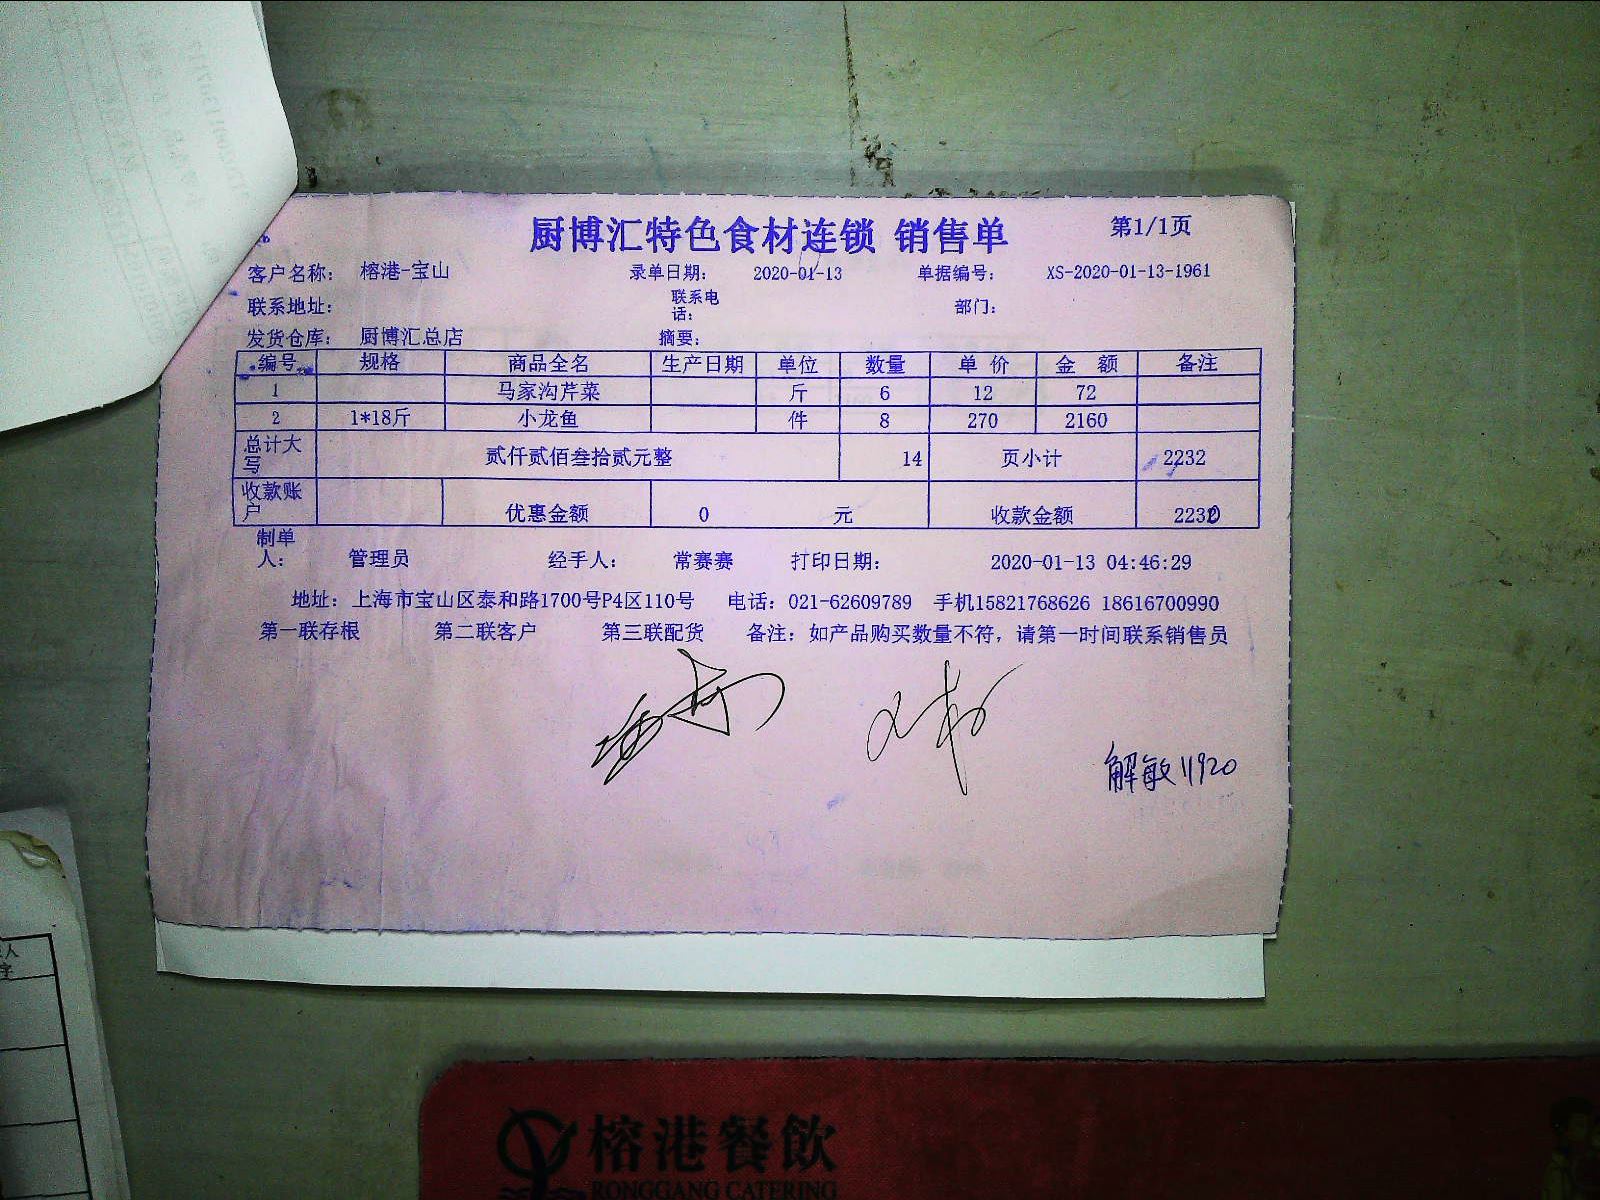 厨博汇特色食材连锁 销售单 第1/1页
客户名称： 榕港-宝山 录单日期： 2020-01-13 单据编号： XS-2020-01-13-1961
联系地址： 联系电话： 部门：
发货仓库： 厨博汇总店 摘要：
编号 规格 商品全名 生产日期 单位 数量 单价 金额 备注
1 马家沟芹菜 斤 6 12 72
2 1*18斤 小龙鱼 件 8 270 2160
总计大写 贰仟贰佰叁拾贰元整 14 页小计 2232
收款账户 优惠金额 0 元 收款金额 2232 0
制单人： 管理员 经手人： 常赛赛 打印日期： 2020-01-13 04:46:29
地址：上海市宝山区泰和路1700号P4区110号 电话：021-62609789 手机15821768626 18616700990
第一联存根 第二联客户 第三联配货 备注：如产品购买数量不符，请第一时间联系销售员
解敏11920
人
字
榕港餐飲
RONGGANG CATERING